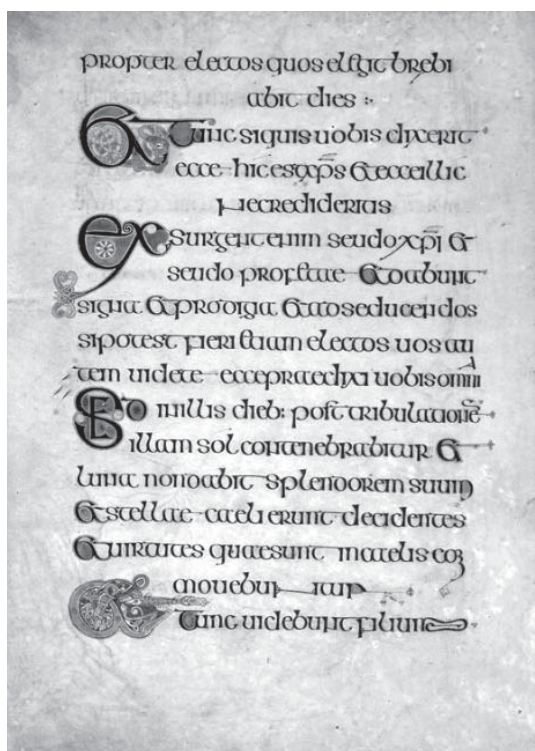 propter electos quos elegit brebi
abit dies :·
Et tunc siquis uobis dixerit
ecce hic est xp̄s et ecce illic
necredideritis
Exsurgent enim seudo xp̄i et
seudo profetae et dabunt
signa et prodigia et ad seducendos
sipotest fieri etiam electos uos au
tem uidete ecce praedixi uobis omnia
Sed in illis dieb: post tribulationē
illam sol contenebrabitur et
luna non dabit splendorem suum
et stellae caeli erunt decidentes
et uirtutes quae sunt in caelis com
mouebuntur
Et tunc uidebunt filium